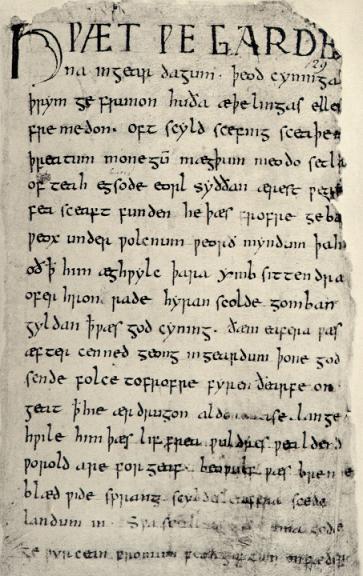 HǷÆT ǷE GARDE
na ingear dagum. þeod cyninga
þrym ge frunon huða æþelingas elle
fremedon. oft scyld scefing sceaþe
þreatum monegū mægþum meodo setla
of teah egsode eorl syððan ærest ƿea
fea sceaft funden he þæs frofre geba
ƿeox under ƿolcnum ƿeorð myndum þah
oð ꝥ him æghƿylc þara ymb sittendra
ofer hron rade hyran scolde gomban
gyldan ꝥ ƿæs god cyning. ðæm eafera ƿæs
æfter cenned geong ingeardum þone god
sende folce tofrofre fyren ðearfe on
geat ꝥ hie ær drugon aldor ase. lange
hƿile him þæs lif frea ƿuldres ƿealdend
ƿorold are for geaf. beoƿulf ƿæs breme
blæd ƿide sprang scyldes eafera scede
landum in. Sƿa sceal guma gode
ge ƿyrcean fromum feoh giftum on fæder